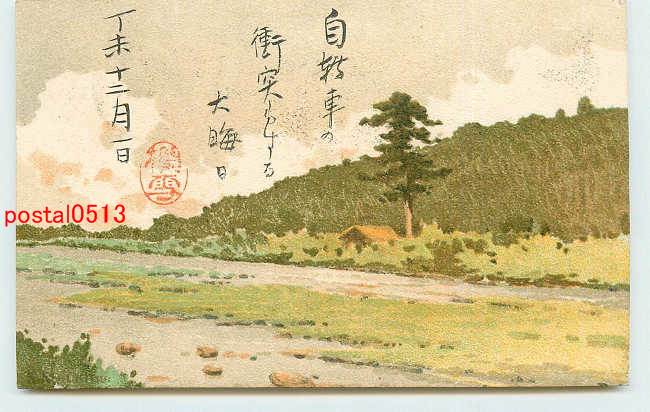 自轉車の
衝突もする
大晦日
丁未十二月一日
postal0513